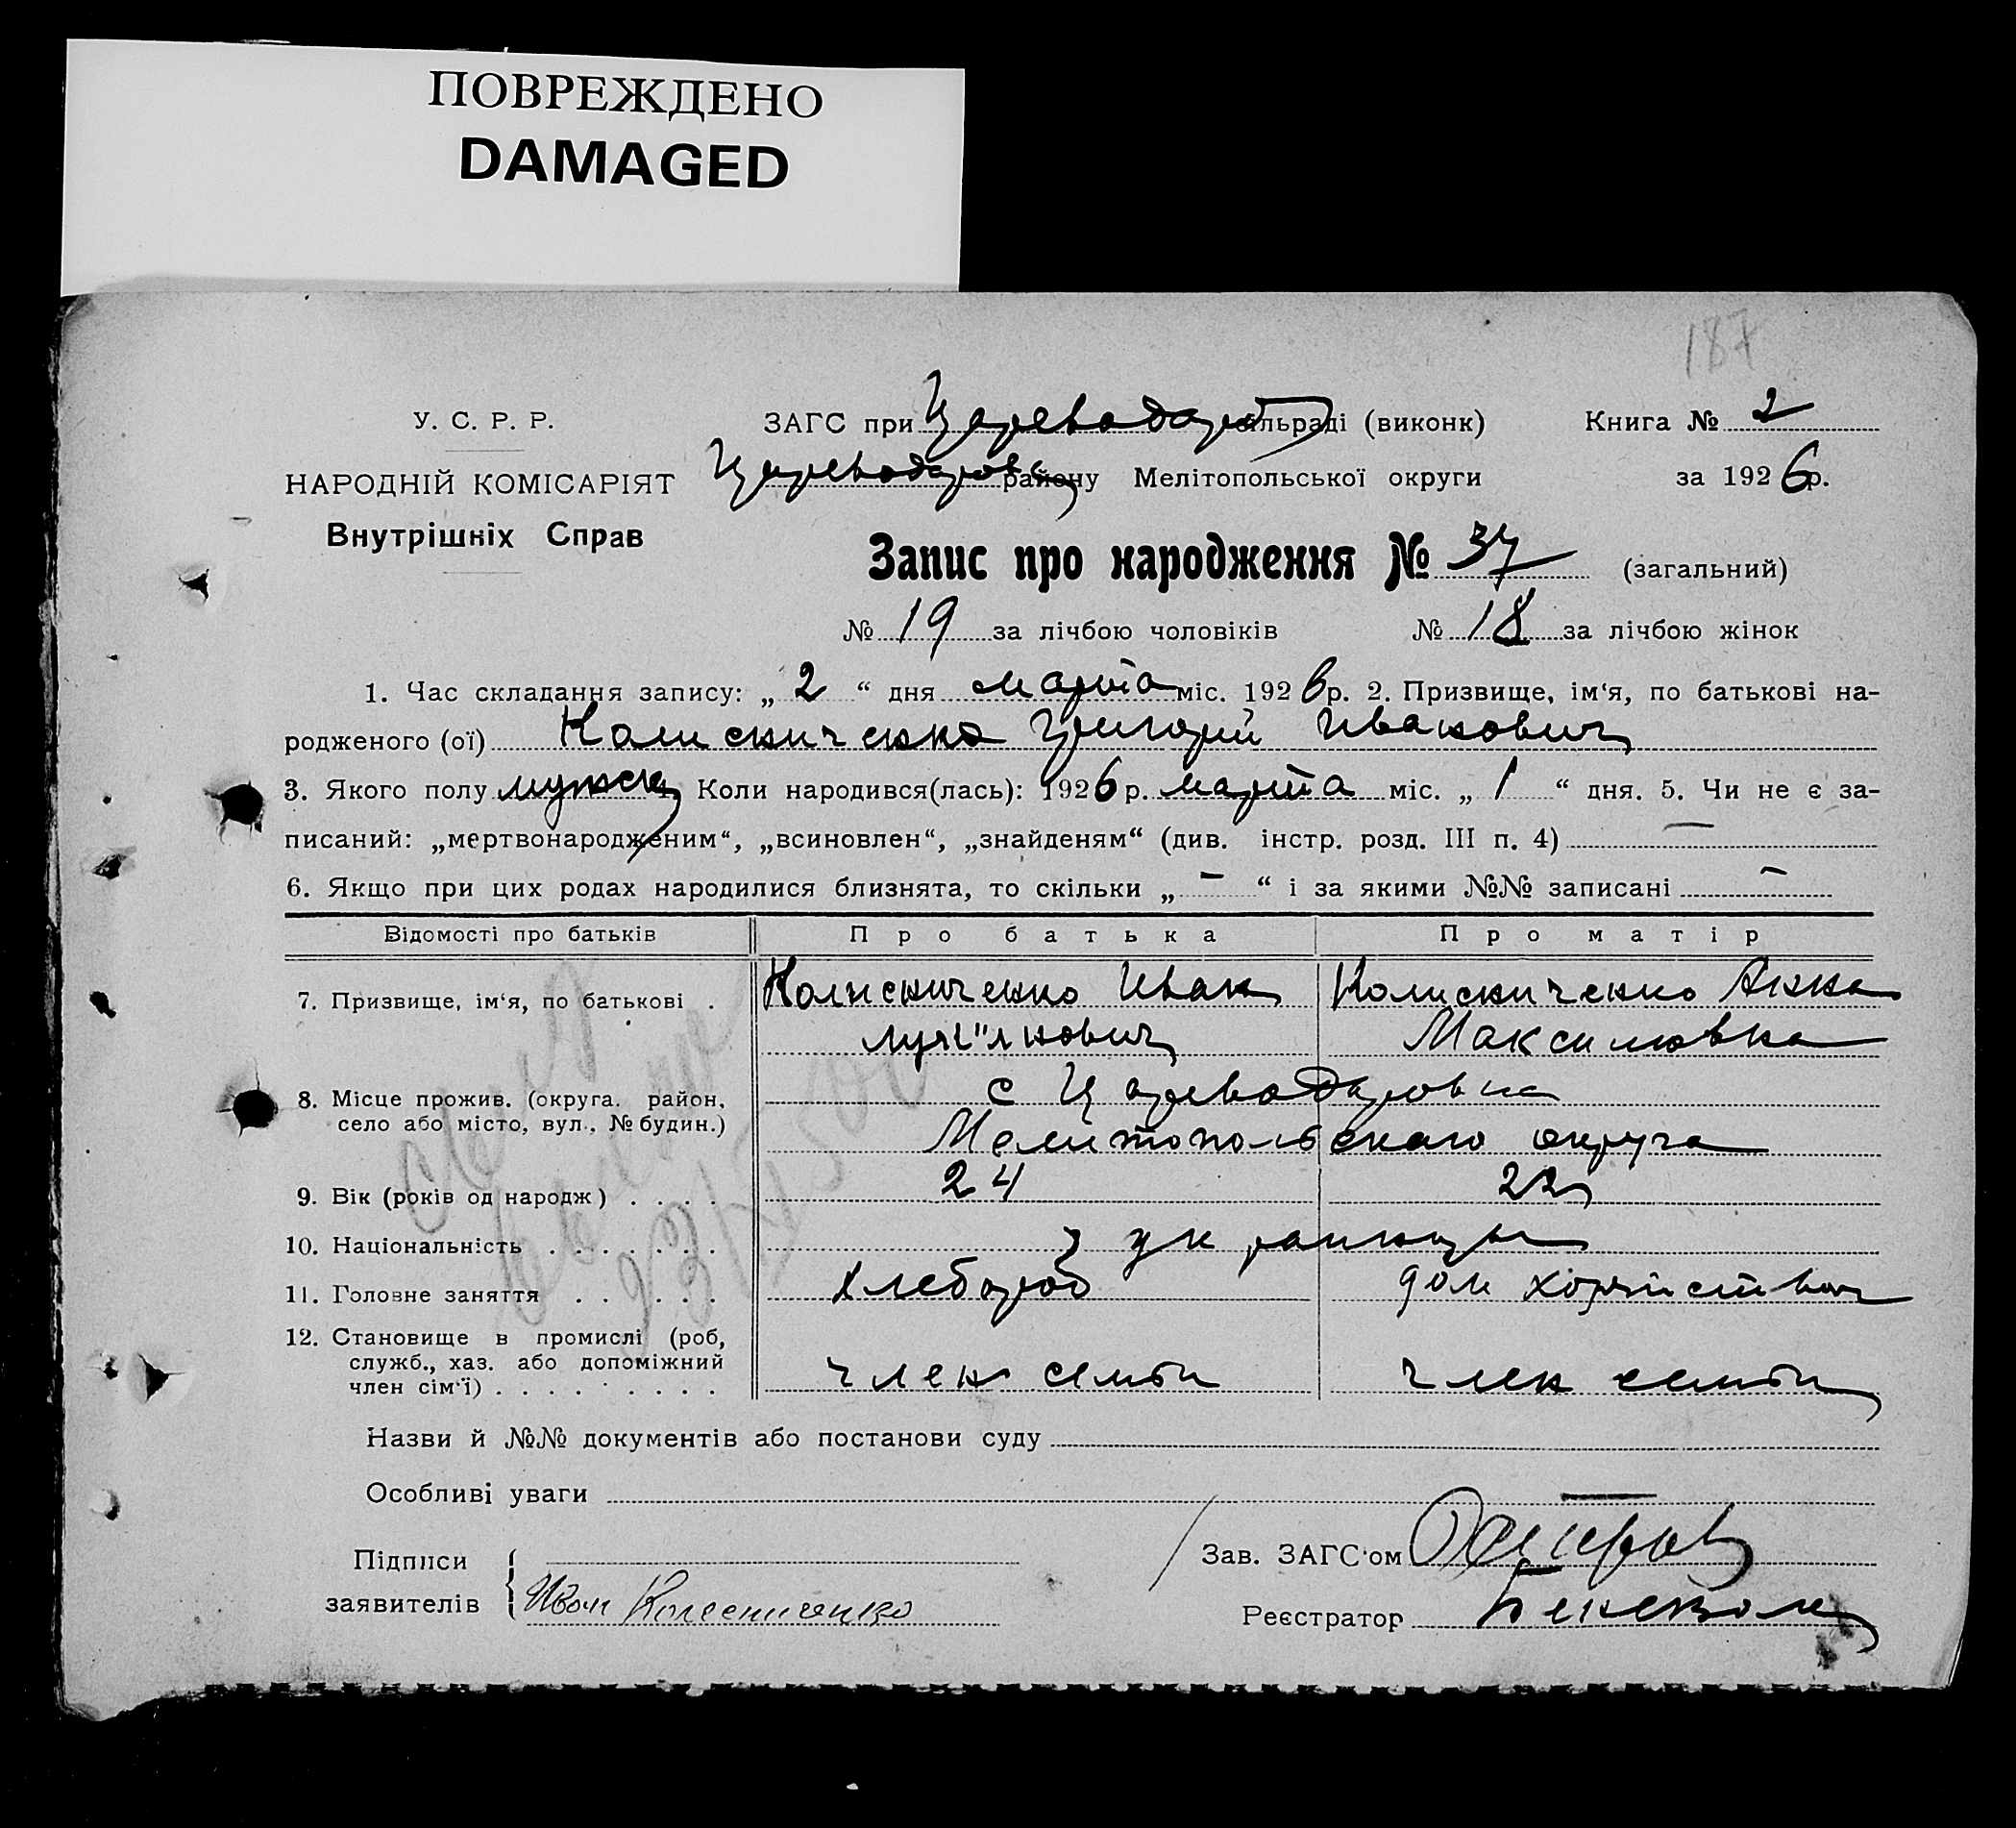 ПОВРЕЖДЕНО
DAMAGED
187
У. С. Р. Р.
НАРОДНІЙ КОМІСАРІЯТ
Внутрішніх Справ
ЗАГС при Цареводар сільраді (виконк)
Книга № 2
Цареводаров району Мелітопольської округи
за 1926 р.
Запис про народження № 37 (загальний)
№ 19 за лічбою чоловіків № 18 за лічбою жінок
1. Час складання запису: „ 2 “ дня марта міс. 1926 р. 2. Призвище, ім‘я, по батькові на-
родженого (ої) Колисниченко Григорий Иванович
3. Якого полу мужск Коли народився(лась): 1926 р. марта міс. „ 1 “ дня. 5. Чи не є за-
писаний: „мертвонародженим“, „всиновлен“, „знайденям“ (див. інстр. розд. III п. 4) —
6. Якщо при цих родах народилися близнята, то скільки „ – “ і за якими №№ записані –
Відомості про батьків Про батька Про матір
7. Призвище, ім‘я, по батькові . Колисниченко Иван Колисниченко Анна
Максимовна
8. Місце прожив. (округа. район, село або місто, вул., № будин.) с Цареводаровка
Мелитопольского округа
9. Вік (років од народж) . . . 24 22
10. Національність . . . . . . .
11. Головне заняття . . . . . . хлебороб дом хозяйством
12. Становище в промислі (роб,
служб., хаз. або допоміжний
член сім‘ї) . . . . . . . . . член семьи член семьи
Назви й №№ документів або постанови суду
Особливі уваги —
Підписи
заявителів Иван Колесниченко
Зав. ЗАГС‘ом
Реєстратор